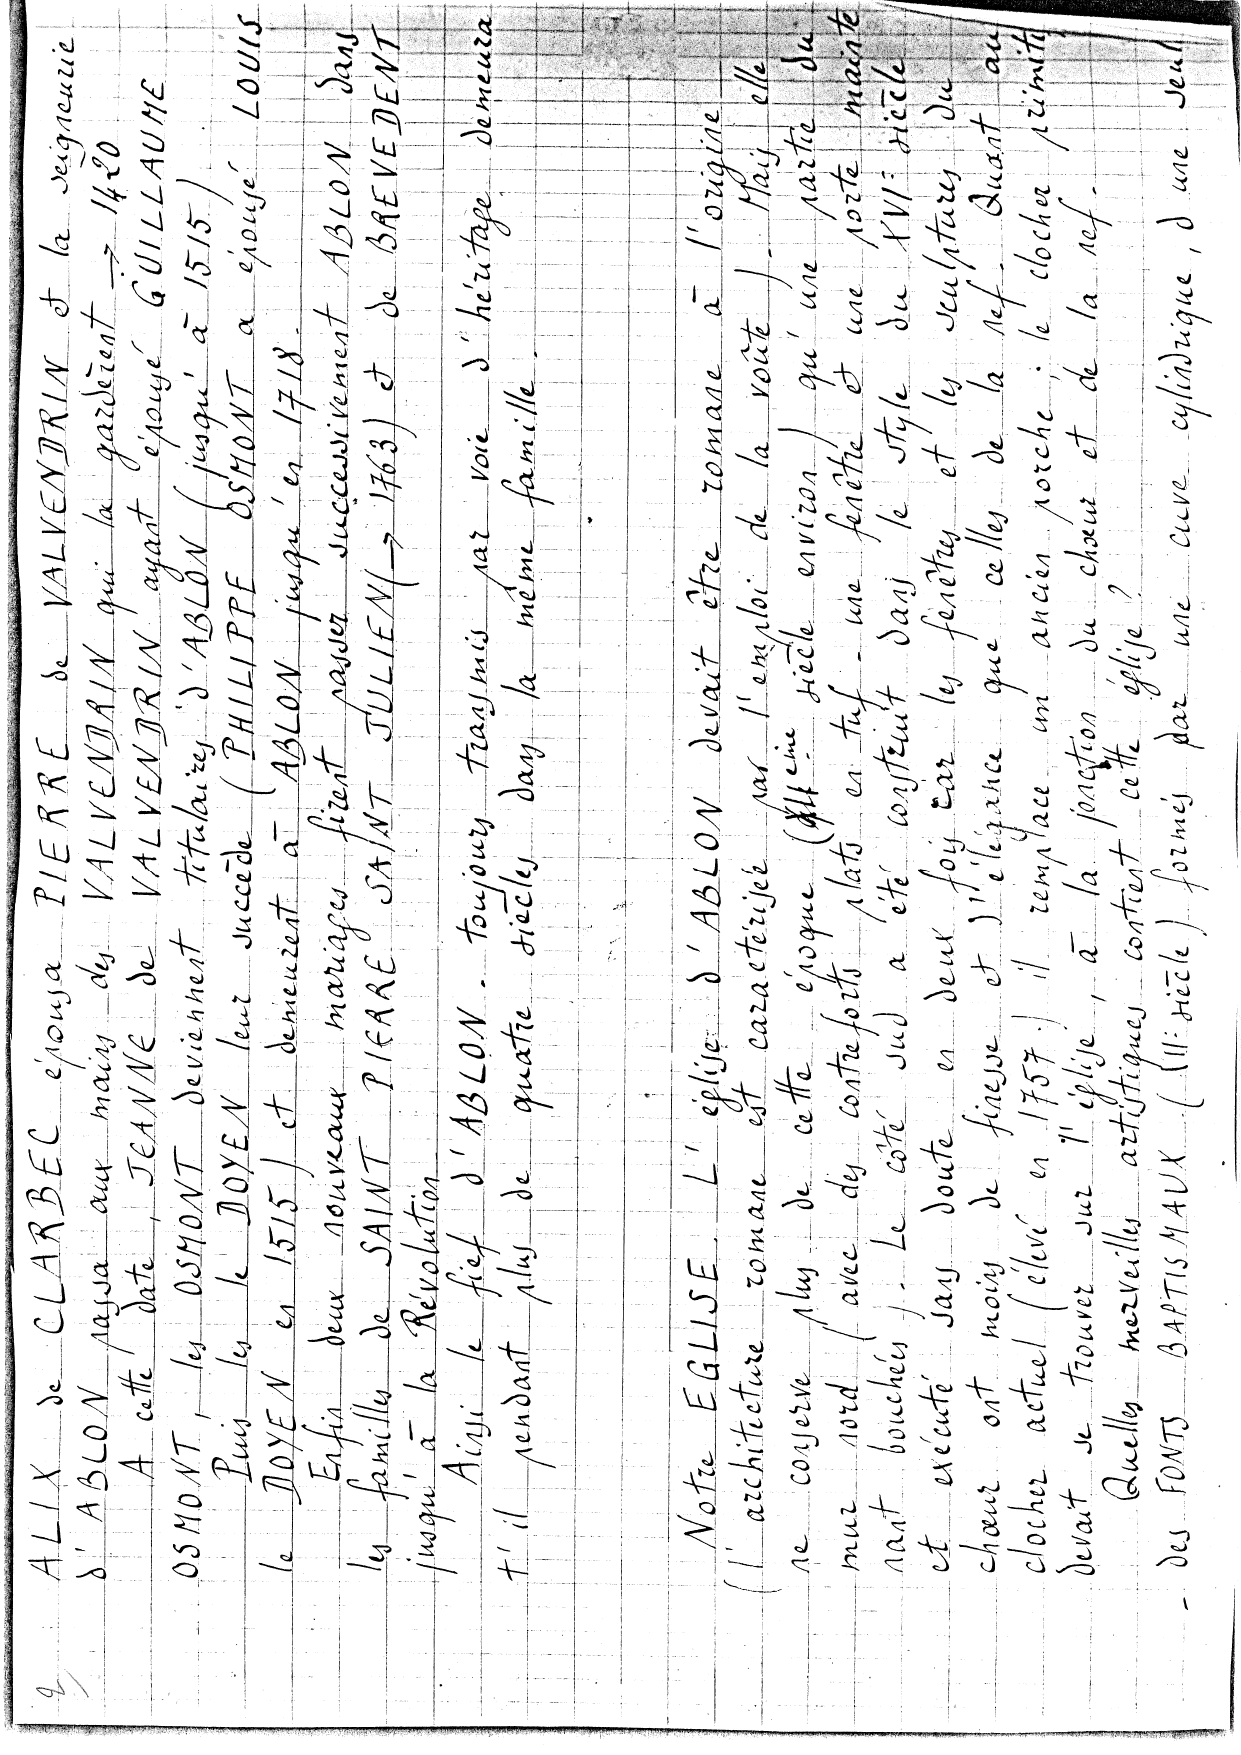 2/
ALIX de CLARBEC épousa PIERRE de VALVENDRIN et la seigneurie
d'ABLON passa aux mains des VALVENDRIN qui la gardèrent → 1420
A cette date, JEANNE de VALVENDRIN ayant épousé GUILLAUME
OSMONT, les OSMONT deviennent titulaires d'ABLON (jusqu'à 1515)
Puis les le DOYEN leur succède (PHILIPPE OSMONT a épousé LOUIS
le DOYEN en 1515) et demeurent à ABLON jusqu'en 1718.
Enfin deux nouveaux mariages firent passer successivement ABLON dans
les familles de SAINT PIERRE SAINT JULIEN (→ 1763) et de BREVEDENT
jusqu'à la Révolution
Ainsi le fief d'ABLON - toujours transmis par voie d'héritage demeura
t'il pendant plus de quatre siècles dans la même famille.
Notre EGLISE. L'église d'ABLON devait être romane à l'origine
(l'architecture romane est caractérisée par l'emploi de la voûte). Mais elle
ne conserve plus de cette époque (XIIeme siècle environ) qu'une partie du
mur nord (avec des contreforts plats en tuf - une fenêtre et une porte mainte
nant bouchées). Le côté sud a été construit dans le style du XVIe siècle
et exécuté sans doute en deux fois car les fenêtres et les sculptures du
chœur ont moins de finesse et d'élégance que celles de la nef. Quant au
clocher actuel (élevé en 1757) il remplace un ancien porche; le clocher primitif
devait se trouver sur l'église, à la jonction du chœur et de la nef.
Quelles merveilles artistiques contient cette église?
- des FONTS BAPTISMAUX (III= siècle) formés par une cuve cylindrique, d'une seul